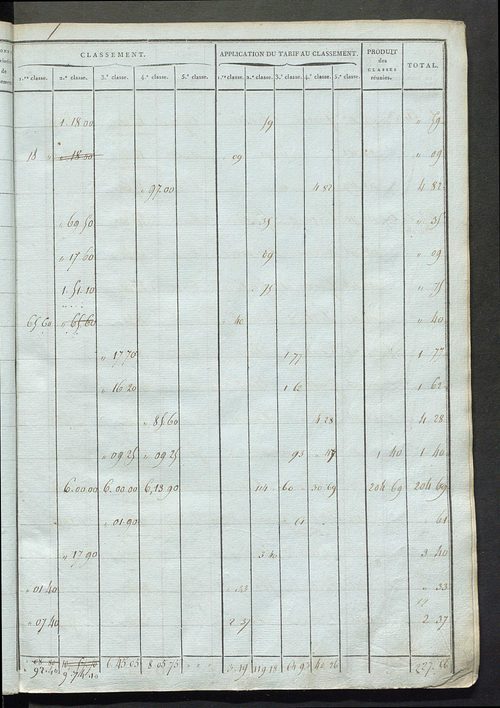 CLASSEMENT. APPLICATION DU TARIF AU CLASSEMENT. PRODUIT des CLASSES réunies. TOTAL.
1.re classe. 2.e classe. 3.e classe. 4.e classe. 5.e classe. 1.re classe. 2.e classe. 3.e classe. 4.e classe. 5.e classe.
1. 18 00 59 " 59
18 " " 18 00 09 " 09
" 97.00 4 82 4 82
" 69 50 " 35 " 35
" 17 60 09 " 09
1. 51. 10 " 75 " 75
65 60 " 65 60 40 " 40
" 17.70 1 77 1 77
" 16 20 1 62
" 85.60 4 28 4 28
" 09 25 " 09 25 93 " 47 1 40 1 40
6.00.00 6.00.00 6,13.90 114 60 " 30 69 204 69 204 69
" 01.90 " 61 61
" 17.90 3 40 3 40
" 01 40 " 33 " 33
" 07 40 2 37 2 37
6 45 05 8 05 75 3.19 119 18 64 93 40 26 227. 56